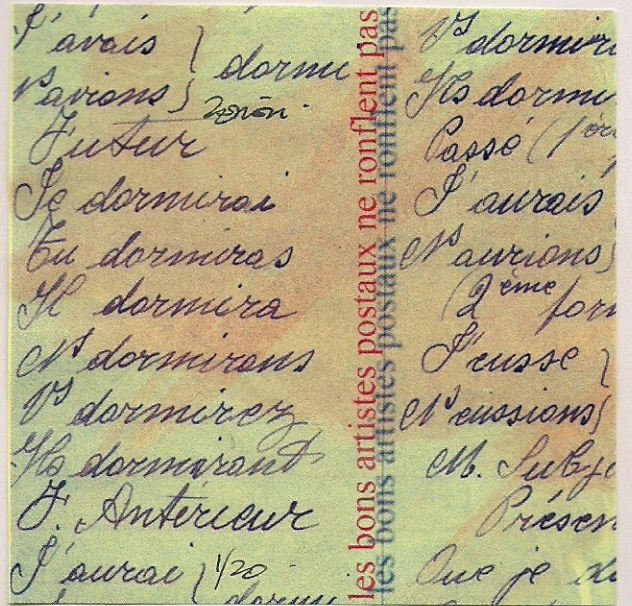 J'avais }
Ns avions } dormi
Futur
Je dormirai
Tu dormiras
Il dormira
Ns dormirons
Vs dormirez
Ils dormiront
F. Antérieur
J'aurai } 1/20
les bons artistes postaux ne ronflent pas
les bons artistes postaux ne ronflent pas
Vs dormir
Ils dormi
Passé (1èr
J'aurais
Ns aurions }
(2ème for
J'eusse }
Ns eussions }
M. Subj
Présen
Que je d